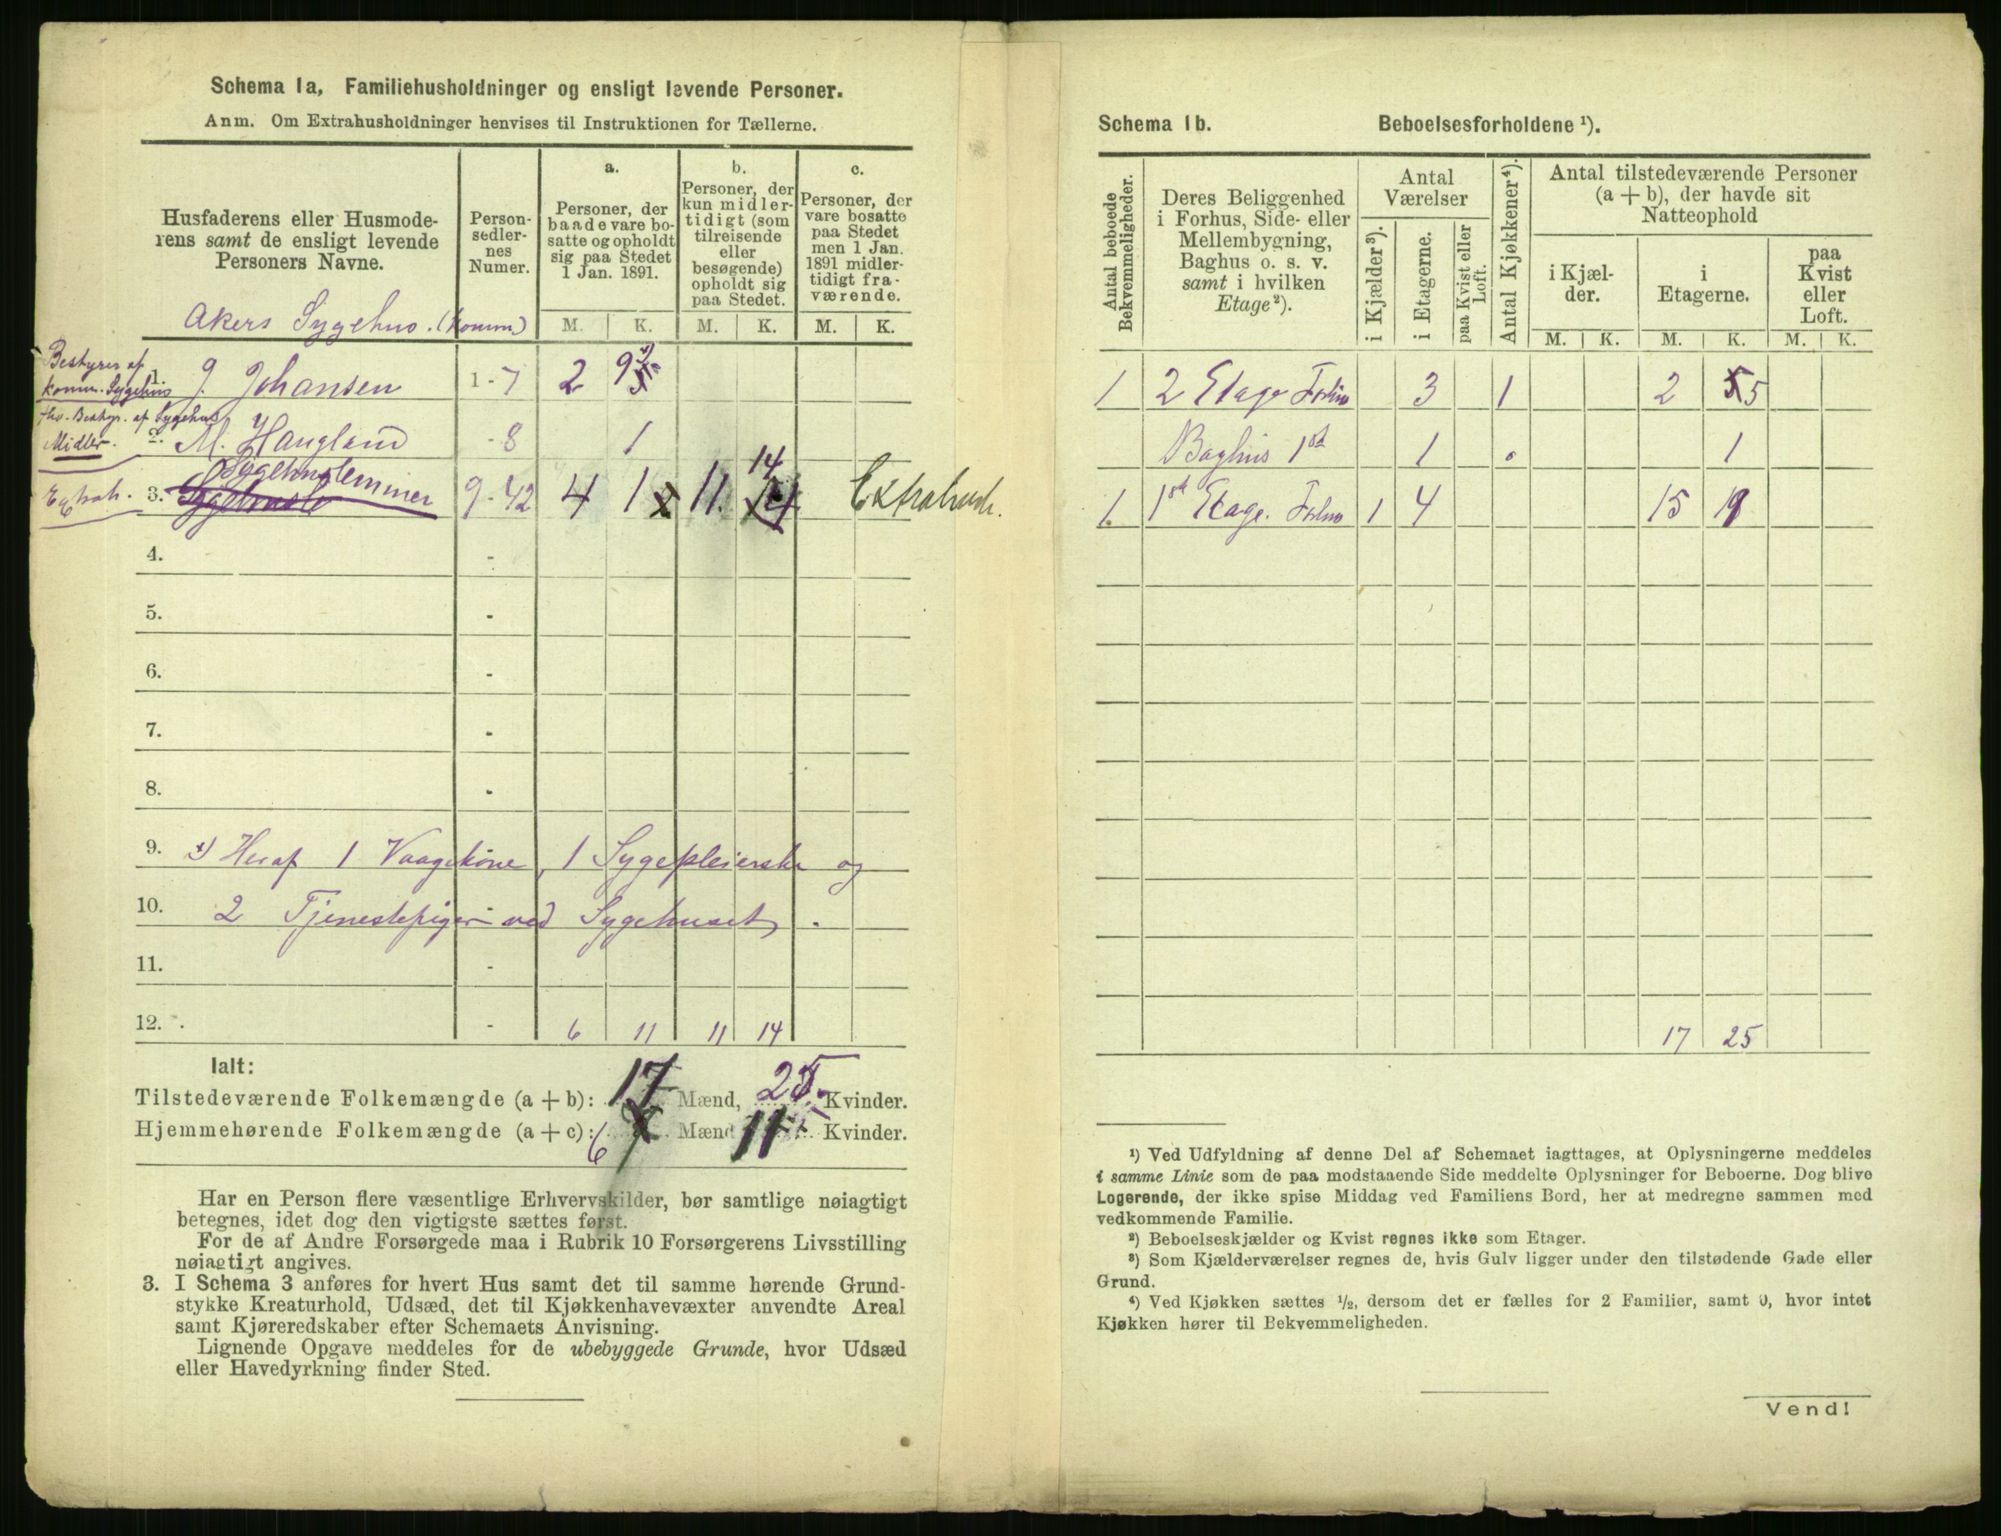 Schema 1a, Familiehusholdninger og ensligt levende Personer.
Anm. Om Extrahusholdninger henvises til Instruktionen for Tællerne.
Husfaderens eller Husmode-
rens samt de ensligt levende
Personers Navne.
Akers Sygehus. (Komm)
Person-
sedler-
nes
Numer.
a.
Personer, der
baade vare bo-
satte og opholdt
sig paa Stedet
1 Jan. 1891.
M. K.
b.
Personer, der
kun midler-
tidigt (som
tilreisende
eller
besøgende)
opholdt sig
paa Stedet.
M. K.
c.
Personer, der
vare bosatte
paa Stedet
men 1 Jan.
1891 midler-
tidigt fra-
værende.
M. K.
Bestyrer af
Komm. Sygehus
1. J. Johansen 1-7 2 9
Bestyr. af Sygehus
Midler.
2. M. Haugland -8 1
Sygehuslemmer
Extrah. 3. 9-42 4 1 11 14 Extrahush.
4. -
5. -
6. -
7. -
8. -
9. x) Heraf 1 Vaagekone, 1 Sygepleierske og
10. 2 Tjenestepiger ved Sygehuset.
11. -
12. - 6 11 11 14
Ialt:
Tilstedeværende Folkemængde (a + b): 17 Mænd, 25 Kvinder.
Hjemmehørende Folkemængde (a + c): 6 Mænd 11 Kvinder.
Har en Person flere væsentlige Erhvervskilder, bør samtlige nøiagtigt
betegnes, idet dog den vigtigste sættes først.
For de af Andre Forsørgede maa i Rubrik 10 Forsørgerens Livsstilling
nøiagtigt angives.
3. I Schema 3 anføres for hvert Hus samt det til samme hørende Grund-
stykke Kreaturhold, Udsæd, det til Kjøkkenhavevæxter anvendte Areal
samt Kjøreredskaber efter Schemaets Anvisning.
Lignende Opgave meddeles for de ubebyggede Grunde, hvor Udsæd
eller Havedyrkning finder Sted.
Schema 1b. Beboelsesforholdene ¹).
Antal beboede
Bekvemmeligheder.
Deres Beliggenhed
i Forhus, Side- eller
Mellembygning,
Baghus o. s. v.
samt i hvilken
Etage ²).
Antal
Værelser
i Kjælder ³).
i Etagerne.
paa Kvist eller
Loft.
Antal Kjøkkener ⁴).
Antal tilstedeværende Personer
(a + b), der havde sit
Natteophold
i Kjæl-
der.
M. K.
i
Etagerne.
M. K.
paa
Kvist
eller
Loft.
M. K.
1 2 Etage Forhus 3 1 2 5
Baghus 1st 1 0 1
1 1st Etage. Forhus 1 4 15 19
17 25
¹) Ved Udfyldning af denne Del af Schemaet iagttages, at Oplysningerne meddeles
i samme Linie som de paa modstaaende Side meddelte Oplysninger for Beboerne. Dog blive
Logerende, der ikke spise Middag ved Familiens Bord, her at medregne sammen med
vedkommende Familie.
²) Beboelseskjælder og Kvist regnes ikke som Etager.
³) Som Kjælderværelser regnes de, hvis Gulv ligger under den tilstødende Gade eller
Grund.
⁴) Ved Kjøkken sættes ½, dersom det er fælles for 2 Familier, samt 0, hvor intet
Kjøkken hører til Bekvemmeligheden.
Vend!